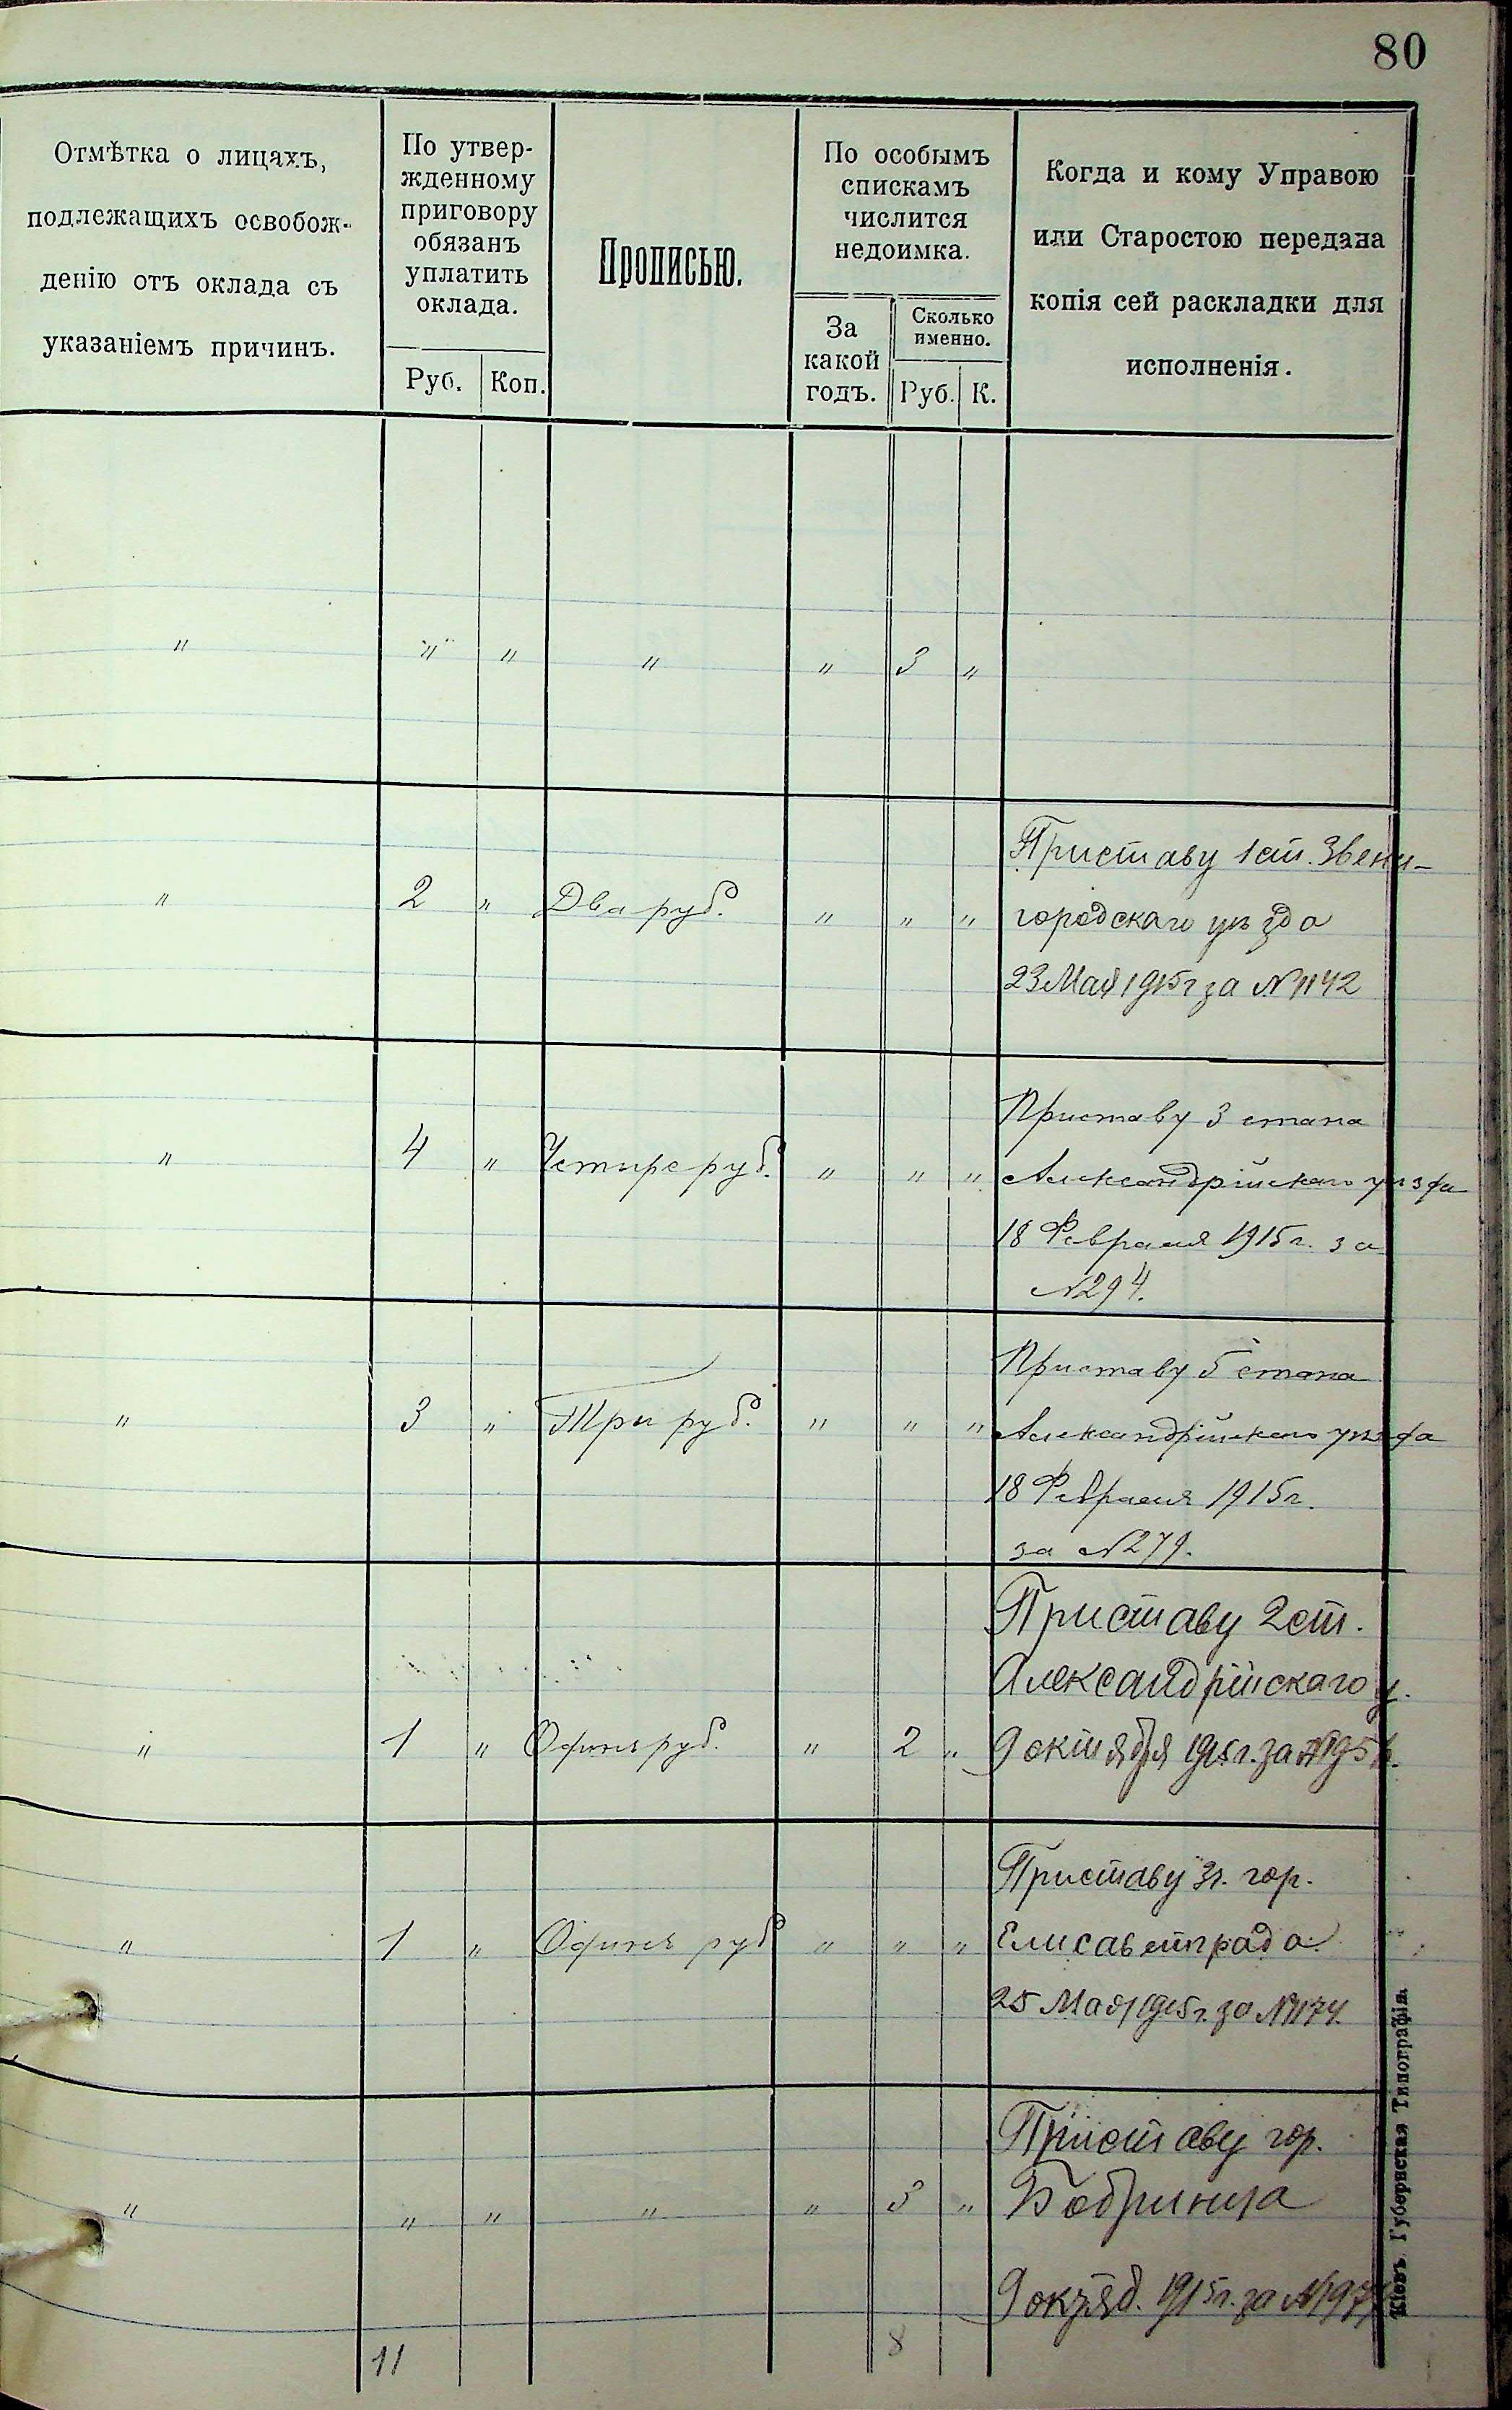 80
Отмѣтка о лицахъ,
подлежащихъ освобож-
денію отъ оклада съ
указаніемъ причинъ.
По утвер-
жденному
приговору
обязанъ
уплатить
оклада.
Руб. Коп.
Прописью.
По особымъ
спискамъ
числится
недоимка.
За
какой
годъ.
Сколько
именно.
Руб. К.
Когда и кому Управою
или Старостою передана
копія сей раскладки для
исполненія.
" " " " " 3 "
Приставу 1 ст. Звени-
" 2 " Два руб. " " " городскаго уѣзда
23 Мая 1915 г за N 1142
Приставу 3 стана
" 4 " Четыре руб. " " " Александрійскаго уѣзда
18 Февраля 1915 г. за
N 294.
Приставу 5 стана
" 3 " Три руб. " " " Александрійскаго уѣзда
18 Февраля 1915 г.
за N 279.
Приставу 2 ст.
Александрійскаго у.
" 1 " Одинъ руб. " 2 " 9 октября 1915 г. за
Приставу гор.
" 1 " Одинъ руб " " " Елисаветграда
25 Мая 1915 г. за N 1174.
Приставу гор.
" " " " " 3 " Бобринца
9 октяб. 1915 г. за
11 8
Кіевъ. Губернская Типографія.